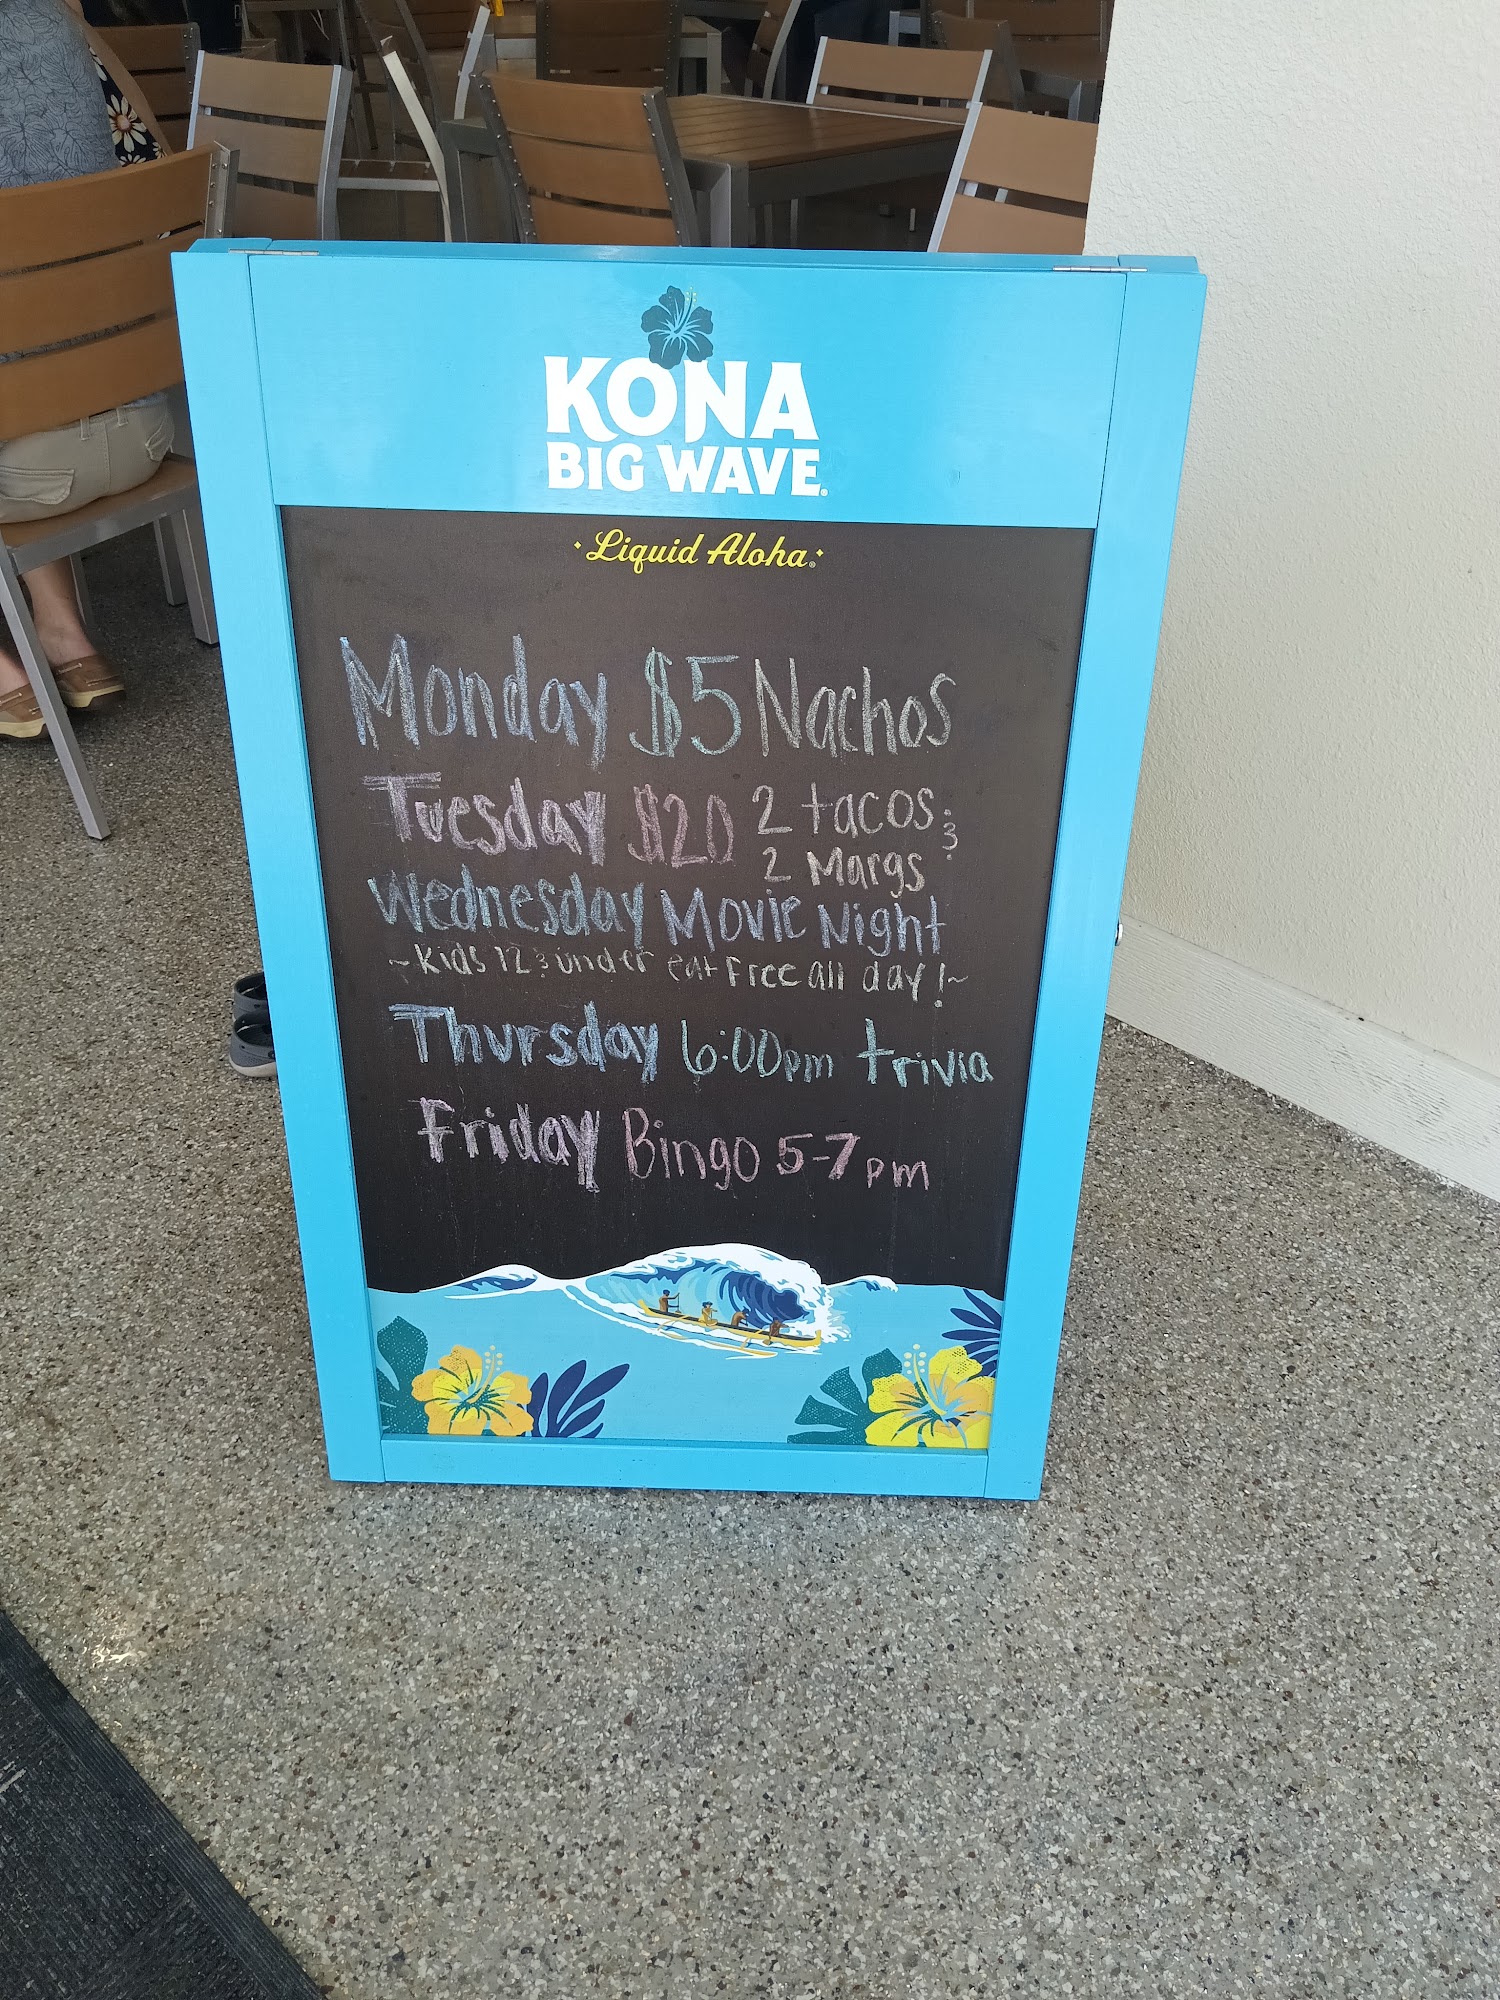 KONA
BIG WAVE®
Liquid Aloha®
Monday $5 Nachos
Tuesday $20 2 tacos &
2 Margs
Wednesday Movie Night
~Kids 12 & under eat Free all day!~
Thursday 6:00pm trivia
Friday Bingo 5-7pm